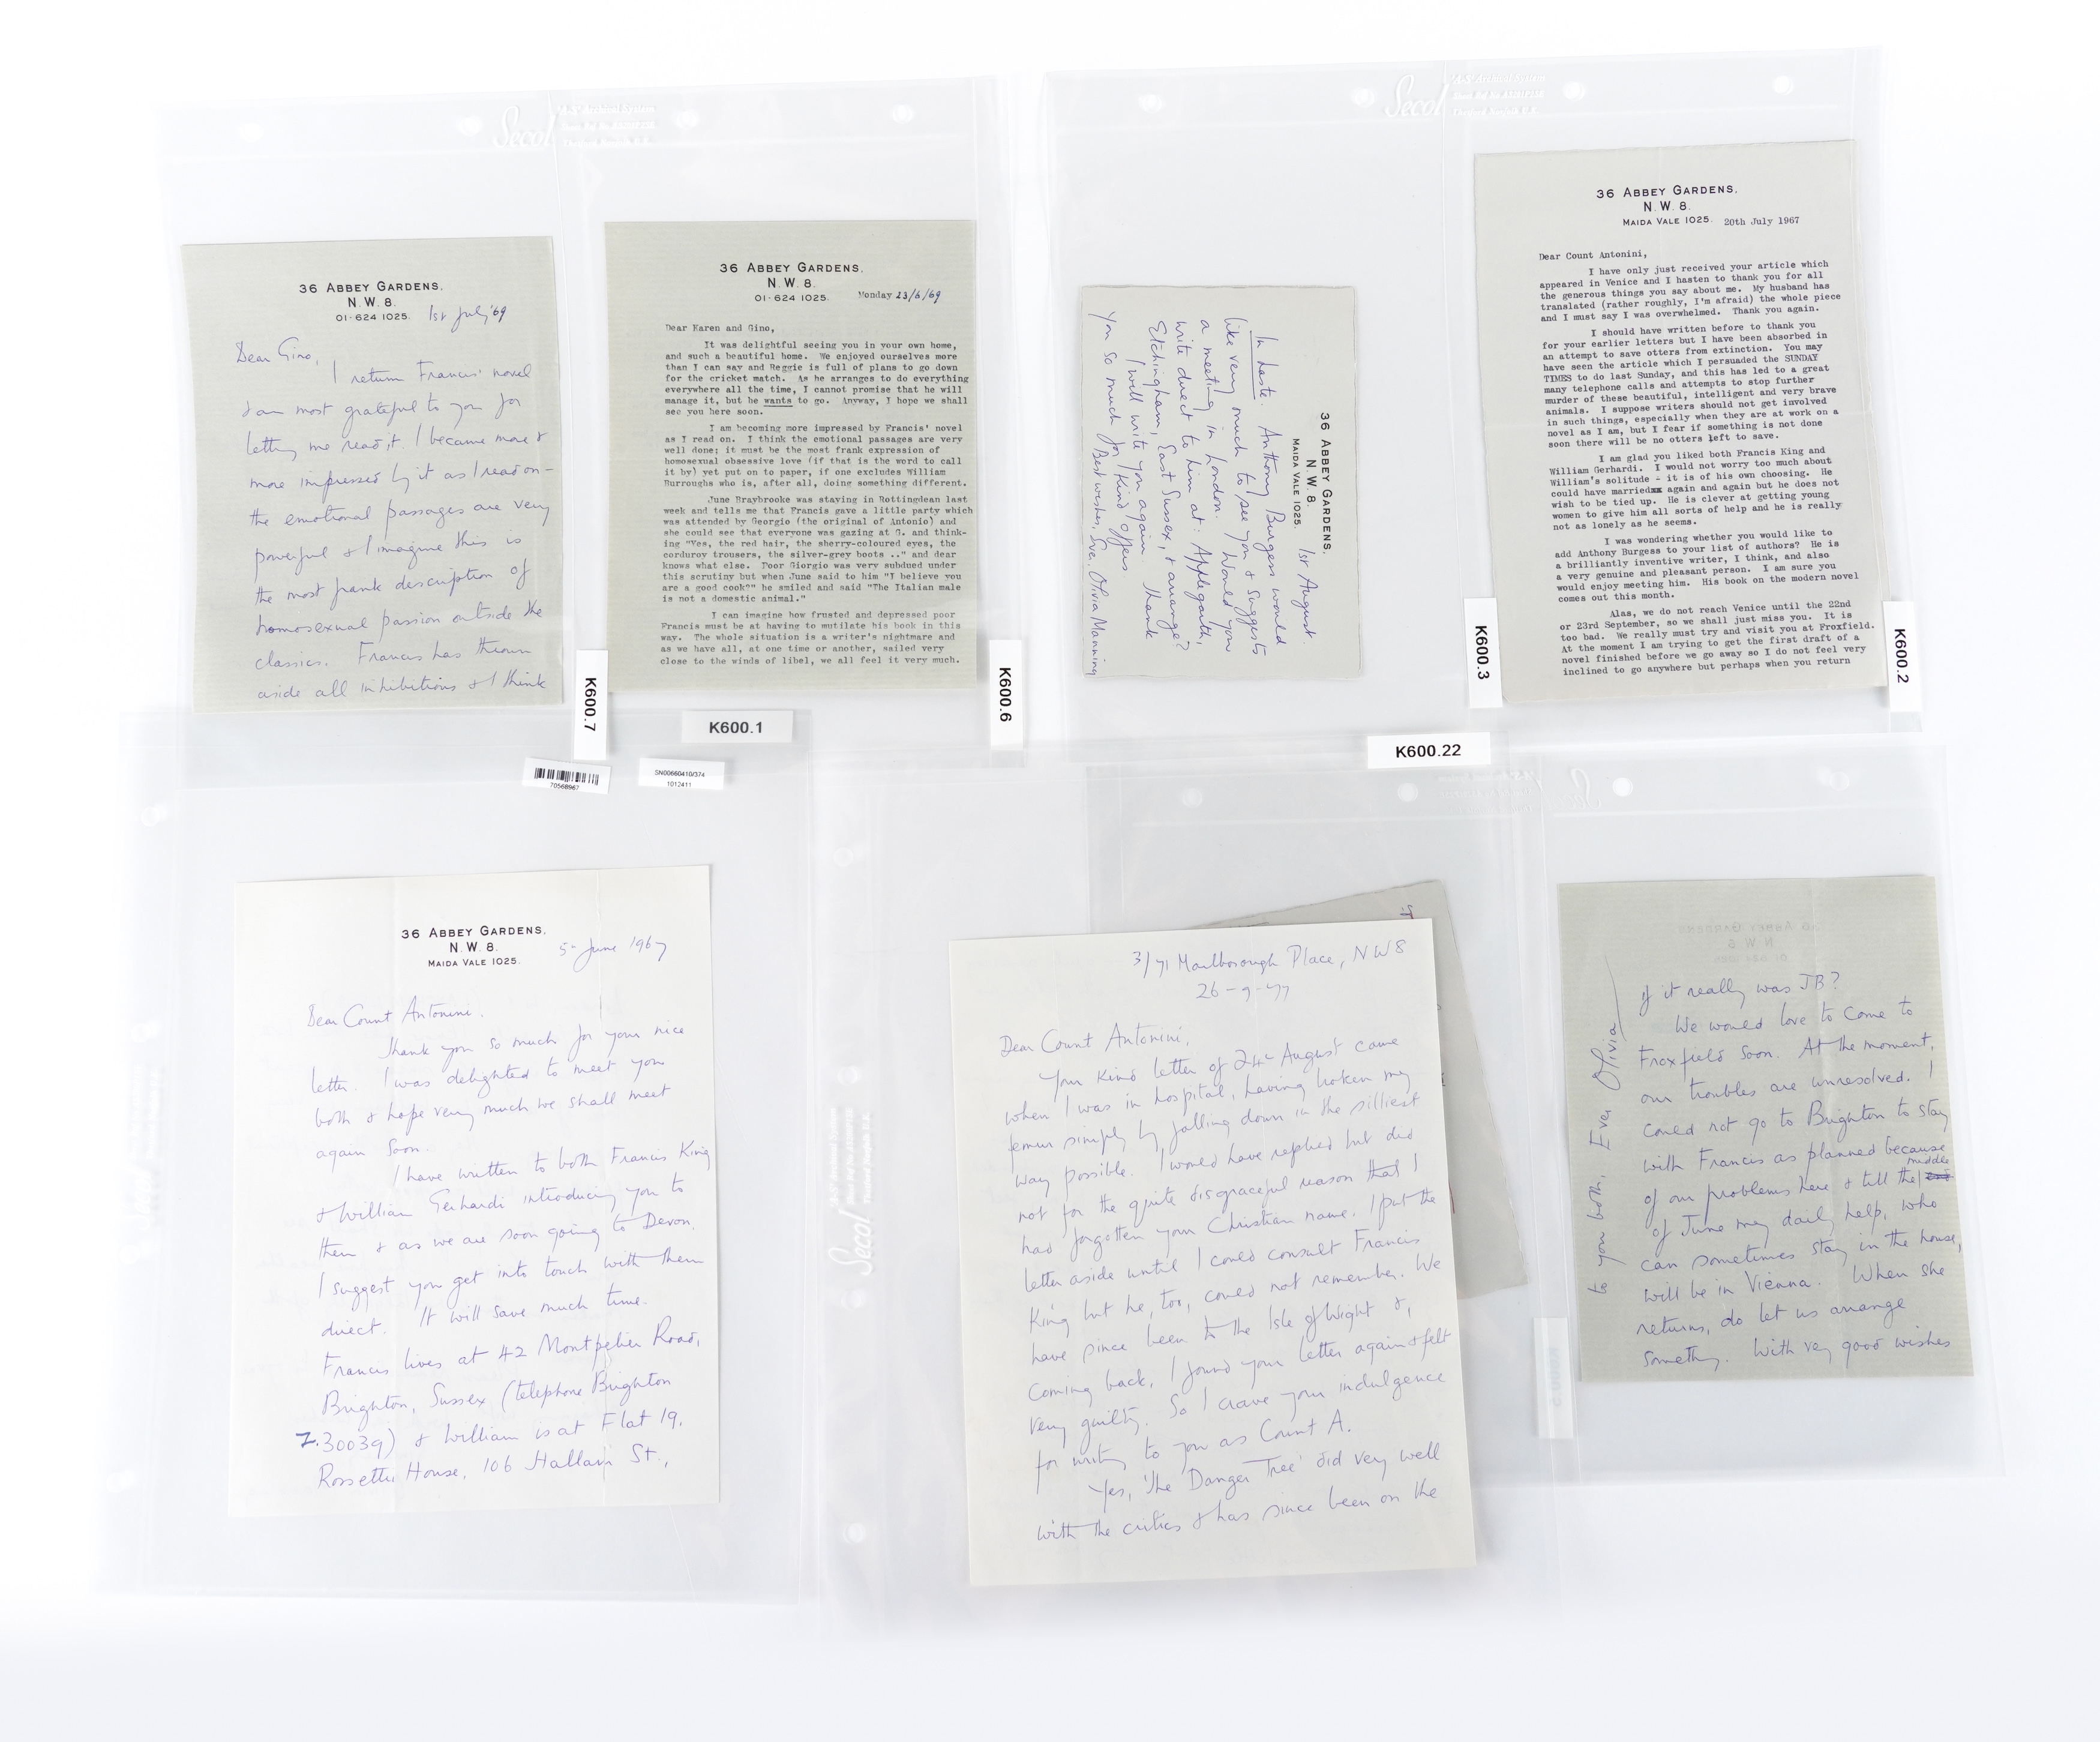 Secol
'A-S' Archival System
36 ABBEY GARDENS,
N.W. 8.
01-624 1025.
1st July '69
Dear Gino,
I return Francis' novel
& am most grateful to you for
letting me read it. I became more &
more impressed by it as I read on -
the emotional passages are very
powerful & I imagine this is
the most frank description of
homosexual passion outside the
classics. Francis has thrown
aside all inhibitions & I think
K600.7
36 ABBEY GARDENS,
N.W. 8.
01-624 1025.
Monday 23/6/69
Dear Karen and Gino,
It was delightful seeing you in your own home,
and such a beautiful home. We enjoyed ourselves more
than I can say and Reggie is full of plans to go down
for the cricket match. As he arranges to do everything
everywhere all the time, I cannot promise that he will
manage it, but he wants to go. Anyway, I hope we shall
see you here soon.
I am becoming more impressed by Francis' novel
as I read on. I think the emotional passages are very
well done; it must be the most frank expression of
homosexual obsessive love (if that is the word to call
it by) yet put on to paper, if one excludes William
Burroughs who is, after all, doing something different.
June Braybrooke was staying in Rottingdean last
week and tells me that Francis gave a little party which
was attended by Georgio (the original of Antonio) and
she could see that everyone was gazing at G. and think-
ing "Yes, the red hair, the sherry-coloured eyes, the
corduroy trousers, the silver-grey boots .." and dear
knows what else. Poor Giorgio was very subdued under
this scrutiny but when June said to him "I believe you
are a good cook?" he smiled and said "The Italian male
is not a domestic animal."
I can imagine how frusted and depressed poor
Francis must be at having to mutilate his book in this
way. The whole situation is a writer's nightmare and
as we have all, at one time or another, sailed very
close to the winds of libel, we all feel it very much.
K600.6
Secol
'A-S' Archival System
36 ABBEY GARDENS,
N.W. 8.
MAIDA VALE 1025.
1st August
In haste. Anthony Burgess would
like very much to see you & suggests
a meeting in London. Would you
write direct to him at: Applegarth,
Etchingham, East Sussex, & arrange?
I will write you again. Thank
you so much for kind offers.
Best wishes, Ever, Olivia Manning
K600.3
36 ABBEY GARDENS,
N.W. 8.
MAIDA VALE 1025.
20th July 1967
Dear Count Antonini,
I have only just received your article which
appeared in Venice and I hasten to thank you for all
the generous things you say about me. My husband has
translated (rather roughly, I'm afraid) the whole piece
and I must say I was overwhelmed. Thank you again.
I should have written before to thank you
for your earlier letters but I have been absorbed in
an attempt to save otters from extinction. You may
have seen the article which I persuaded the SUNDAY
TIMES to do last Sunday, and this has led to a great
many telephone calls and attempts to stop further
murder of these beautiful, intelligent and very brave
animals. I suppose writers should not get involved
in such things, especially when they are at work on a
novel as I am, but I fear if something is not done
soon there will be no otters left to save.
I am glad you liked both Francis King and
William Gerhardi. I would not worry too much about
William's solitude - it is of his own choosing. He
could have marriedxx again and again but he does not
wish to be tied up. He is clever at getting young
women to give him all sorts of help and he is really
not as lonely as he seems.
I was wondering whether you would like to
add Anthony Burgess to your list of authors? He is
a brilliantly inventive writer, I think, and also
a very genuine and pleasant person. I am sure you
would enjoy meeting him. His book on the modern novel
comes out this month.
Alas, we do not reach Venice until the 22nd
or 23rd September, so we shall just miss you. It is
too bad. We really must try and visit you at Froxfield.
At the moment I am trying to get the first draft of a
novel finished before we go away so I do not feel very
inclined to go anywhere but perhaps when you return
K600.2
K600.1
70568967
SN00660410/374
1012411
36 ABBEY GARDENS,
N.W. 8.
MAIDA VALE 1025.
5th June 1967
Dear Count Antonini.
Thank you so much for your nice
letter. I was delighted to meet you
both & hope very much we shall meet
again soon.
I have written to both Francis King
& William Gerhardi introducing you to
them & as we are soon going to Devon.
I suggest you get into touch with them
direct. It will save much time.
Francis lives at 42 Montpelier Road,
Brighton, Sussex (telephone Brighton
2.30039) & William is at Flat 19.
Rossetti House, 106 Hallam St.,
Secol
K600.22
3/71 Marlborough Place, NW8
26-9-77
Dear Count Antonini,
Your kind letter of 24th August came
when I was in hospital, having broken my
femur simply by falling down in the silliest
way possible. I would have replied but did
not for the quite disgraceful reason that I
had forgotten your Christian name. I put the
letter aside until I could consult Francis
King but he, too, could not remember. We
have since been to the Isle of Wight &,
coming back, I found your letter again & felt
very guilty. So I crave your indulgence
for writing to you as Count A.
Yes, 'The Danger Tree' did very well
with the critics & has since been on the
if it really was JB?
We would love to come to
Froxfield soon. At the moment,
our troubles are unresolved. I
could not go to Brighton to stay
with Francis as planned because
of our problems here & till the middle
of June my daily help, who
can sometimes stay in the house,
will be in Vienna. When she
returns, do let us arrange
something. With very good wishes
to you both, Ever Olivia